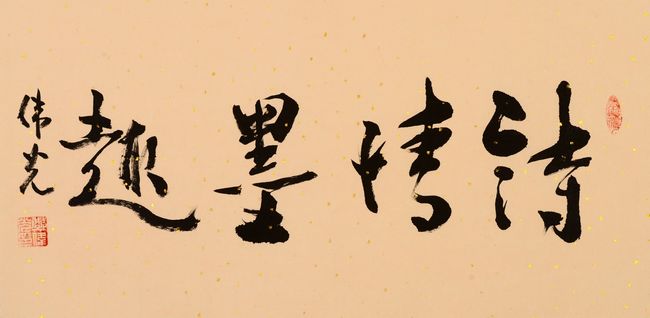 詩情墨趣
偉光